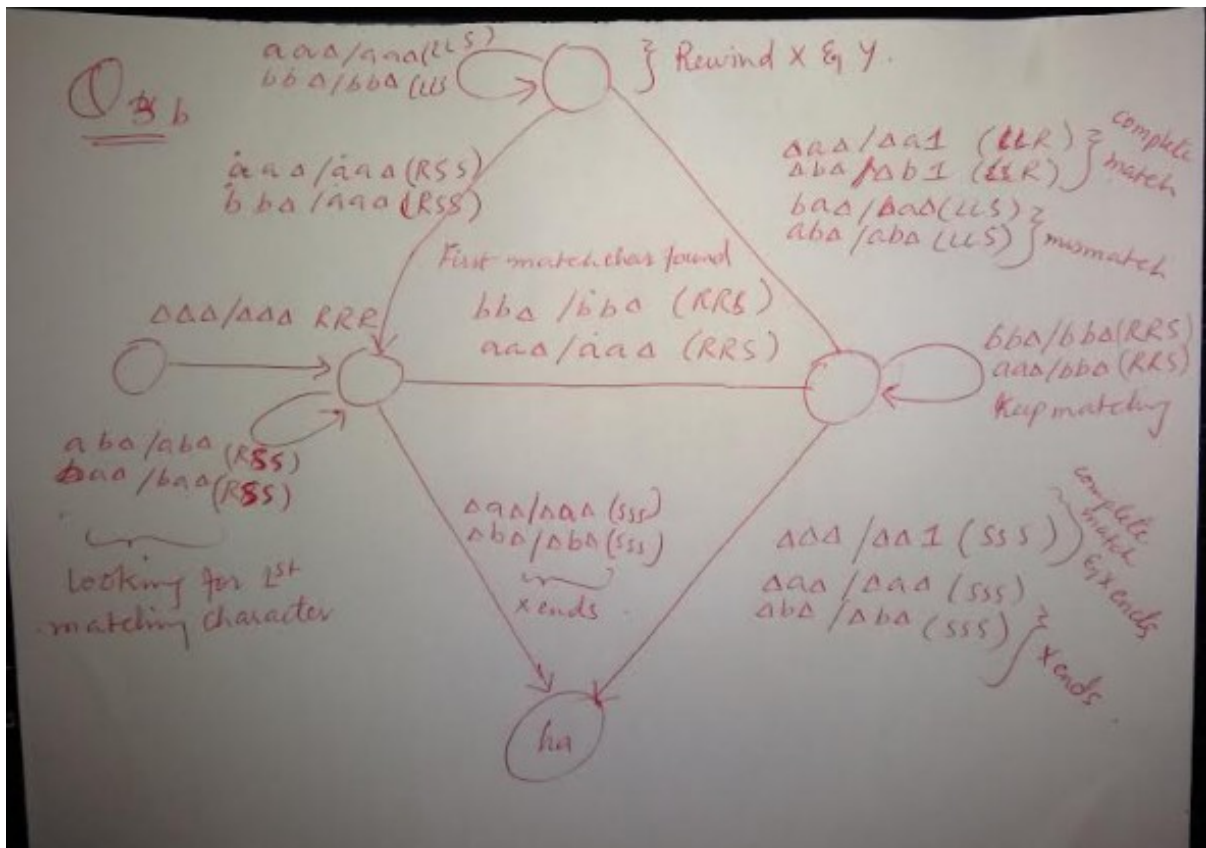 Q3 b
aaΔ/aaa(LLS)
bbΔ/bbΔ(LLS
} Rewind X & Y.
ȧaΔ/ȧaΔ(RSS)
ḃbΔ/ȧaΔ(RSS)
ΔaΔ/Δa1 (LLR)
ΔbΔ/Δb1 (LLR)
} complete match
baΔ/baΔ(LLS)
abΔ/abΔ(LLS)
} mismatch
First match char found
bbΔ/ḃbΔ (RRS)
aaΔ/ȧaΔ (RRS)
ΔΔΔ/ΔΔΔ RRR
bbΔ/bbΔ(RRS)
aaΔ/bbΔ(RRS)
Keep matching
abΔ/abΔ(RSS)
baΔ/baΔ(RSS)
Looking for 1st
matching character
ΔaΔ/ΔaΔ(SSS)
ΔbΔ/ΔbΔ(SSS)
X ends.
ΔΔΔ/ΔΔ1 (SSS)
} complete match & X ends
ΔaΔ/ΔaΔ(SSS)
ΔbΔ/ΔbΔ(SSS)
} X ends.
ha